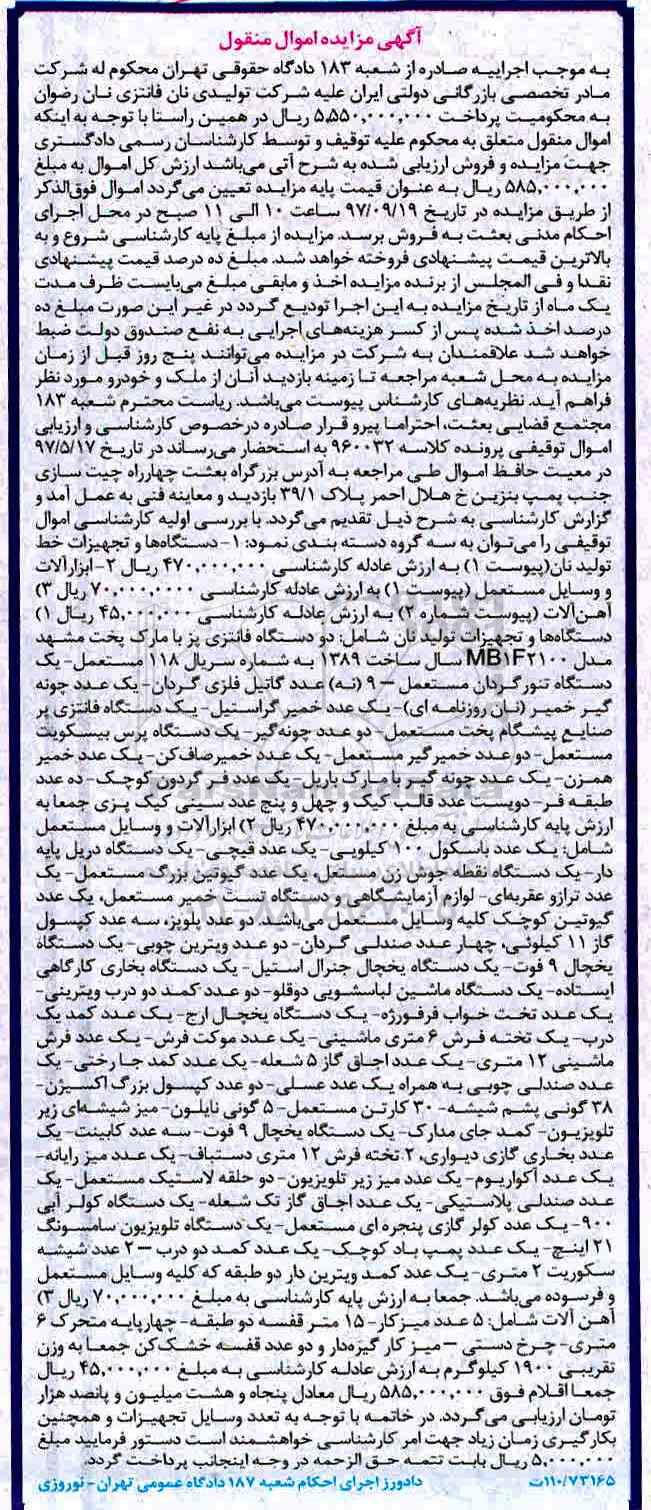 آگهی مزایده اموال منقول
به موجب اجراییه صادره از شعبه ۱۸۳ دادگاه حقوقی تهران محکوم له شرکت
مادر تخصصی بازرگانی دولتی ایران علیه شرکت تولیدی نان فانتزی نان رضوان
به محکومیت پرداخت ۵,۵۵۰,۰۰۰,۰۰۰ ریال در همین راستا با توجه به اینکه
اموال منقول متعلق به محکوم علیه توقیف و توسط کارشناسان رسمی دادگستری
جهت مزایده و فروش ارزیابی شده به شرح آتی می‌باشد ارزش کل اموال به مبلغ
۵۸۵,۰۰۰,۰۰۰ ریال به عنوان قیمت پایه مزایده تعیین می‌گردد اموال فوق‌الذکر
از طریق مزایده در تاریخ ۹۷/۰۹/۱۹ ساعت ۱۰ الی ۱۱ صبح در محل اجرای
احکام مدنی بعثت به فروش برسد. مزایده از مبلغ پایه کارشناسی شروع و به
بالاترین قیمت پیشنهادی فروخته خواهد شد. مبلغ ده درصد قیمت پیشنهادی
نقدا و فی المجلس از برنده مزایده اخذ و مابقی مبلغ می‌بایست ظرف مدت
یک ماه از تاریخ مزایده به این اجرا تودیع گردد در غیر این صورت مبلغ ده
درصد اخذ شده پس از کسر هزینه‌های اجرایی به نفع صندوق دولت ضبط
خواهد شد علاقمندان به شرکت در مزایده می‌توانند پنج روز قبل از زمان
مزایده به محل شعبه مراجعه تا زمینه بازدید آنان از ملک و خودرو مورد نظر
فراهم آید. نظریه‌های کارشناس پیوست می‌باشد. ریاست محترم شعبه ۱۸۳
مجتمع قضایی بعثت، احتراما پیرو قرار صادره درخصوص کارشناسی و ارزیابی
اموال توقیفی پرونده کلاسه ۹۶۰۰۳۲ به استحضار می‌رساند در تاریخ ۹۷/۵/۱۷
در معیت حافظ اموال طی مراجعه به آدرس بزرگراه بعثت چهارراه چیت سازی
جنب پمپ بنزین خ هلال احمر پلاک ۳۹/۱ بازدید و معاینه فنی به عمل آمد و
گزارش کارشناسی به شرح ذیل تقدیم می‌گردد. با بررسی اولیه کارشناسی اموال
توقیفی را می‌توان به سه گروه دسته بندی نمود: ۱- دستگاه‌ها و تجهیزات خط
تولید نان(پیوست ۱) به ارزش عادله کارشناسی ۴۷۰,۰۰۰,۰۰۰ ریال ۲-ابزارآلات
و وسایل مستعمل (پیوست ۱) به ارزش عادله کارشناسی ۷۰,۰۰۰,۰۰۰۰ ریال ۳)
آهن‌آلات (پیوست شماره ۲) به ارزش عادله کارشناسی ۴۵,۰۰۰,۰۰۰ ریال ۱)
دستگاه‌ها و تجهیزات تولید نان شامل: دو دستگاه فانتزی پز با مارک پخت مشهد
مدل MB۱F۲۱۰۰ سال ساخت ۱۳۸۹ به شماره سریال ۱۱۸ مستعمل- یک
دستگاه تنور گردان مستعمل – ۹ (نه) عدد گاتیل فلزی گردان- یک عدد چونه
گیر خمیر (نان روزنامه ای)- یک عدد خمیر گراستیل- یک دستگاه فانتزی پز
صنایع پیشگام پخت مستعمل- دو عدد چونه‌گیر- یک دستگاه پرس بیسکویت
مستعمل- دو عدد خمیرگیر مستعمل- یک عدد خمیرصاف‌کن- یک عدد خمیر
همزن- یک عدد چونه گیر با مارک باریل- یک عدد فر گردون کوچک- ده عدد
طبقه فر- دویست عدد قالب کیک و چهل و پنج عدد سینی کیک پزی جمعا به
ارزش پایه کارشناسی به مبلغ ۴۷۰,۰۰۰,۰۰۰ ریال ۲) ابزارآلات و وسایل مستعمل
شامل: یک عدد باسکول ۱۰۰ کیلویی- یک عدد قیچی- یک دستگاه دریل پایه
دار- یک دستگاه نقطه جوش زن مستعل، یک عدد گیوتین بزرگ مستعمل- یک
عدد ترازو عقربه‌ای- لوازم آزمایشگاهی و دستگاه تست خمیر مستعمل، یک عدد
گیوتین کوچک کلیه وسایل مستعمل می‌باشد. دو عدد پلوپز، سه عدد کپسول
گاز ۱۱ کیلوئی، چهار عدد صندلی گردان- دو عدد ویترین چوبی- یک دستگاه
یخچال ۹ فوت- یک دستگاه یخچال جنرال استیل- یک دستگاه بخاری کارگاهی
ایستاده- یک دستگاه ماشین لباسشویی دوقلو- دو عدد کمد دو درب ویترینی-
یک عدد تخت خواب فرفورژه- یک دستگاه یخچال ارج- یک عدد کمد یک
درب- یک تخته فرش ۶ متری ماشینی- یک عدد موکت فرش- یک عدد فرش
ماشینی ۱۲ متری- یک عدد اجاق گاز ۵ شعله- یک عدد کمد جا رختی- یک
عدد صندلی چوبی به همراه یک عدد عسلی- دو عدد کپسول بزرگ اکسیژن-
۳۸ گونی پشم شیشه- ۳۰ کارتن مستعمل- ۵ گونی نایلون- میز شیشه‌ای زیر
تلویزیون- کمد جای مدارک- یک دستگاه یخچال ۹ فوت- سه عدد کابینت- یک
عدد بخاری گازی دیواری، ۲ تخته فرش ۱۲ متری دستباف- یک عدد میز رایانه-
یک عدد آکواریوم- یک عدد میز زیر تلویزیون- دو حلقه لاستیک مستعمل- یک
عدد صندلی پلاستیکی- یک عدد اجاق گاز تک شعله- یک دستگاه کولر آبی
۹۰۰- یک عدد کولر گازی پنجره ای مستعمل- یک دستگاه تلویزیون سامسونگ
۲۱ اینچ- یک عدد پمپ باد کوچک- یک عدد کمد دو درب – ۲ عدد شیشه
سکوریت ۲ متری- یک عدد کمد ویترین دار دو طبقه که کلیه وسایل مستعمل
و فرسوده می‌باشد. جمعا به ارزش پایه کارشناسی به مبلغ ۷۰,۰۰۰,۰۰۰ ریال ۳)
آهن آلات شامل: ۵ عدد میزکار- ۱۵ متر قفسه دو طبقه- چهارپایه متحرک ۶
متری- چرخ دستی – میز کار گیره‌دار و دو عدد قفسه خشک‌کن جمعا به وزن
تقریبی ۱۹۰۰ کیلوگرم به ارزش عادله کارشناسی به مبلغ ۴۵,۰۰۰,۰۰۰ ریال
جمعا اقلام فوق ۵۸۵,۰۰۰,۰۰۰ ریال معادل پنجاه و هشت میلیون و پانصد هزار
تومان ارزیابی می‌گردد. در خاتمه با توجه به تعدد وسایل تجهیزات و همچنین
بکارگیری زمان زیاد جهت امر کارشناسی خواهشمند است دستور فرمایید مبلغ
۵,۰۰۰,۰۰۰ ریال بابت تتمه حق الزحمه در وجه اینجانب پرداخت گردد.
۱۱۰/۷۳۱۶۵ت دادورز اجرای احکام شعبه ۱۸۷ دادگاه عمومی تهران - نوروزی